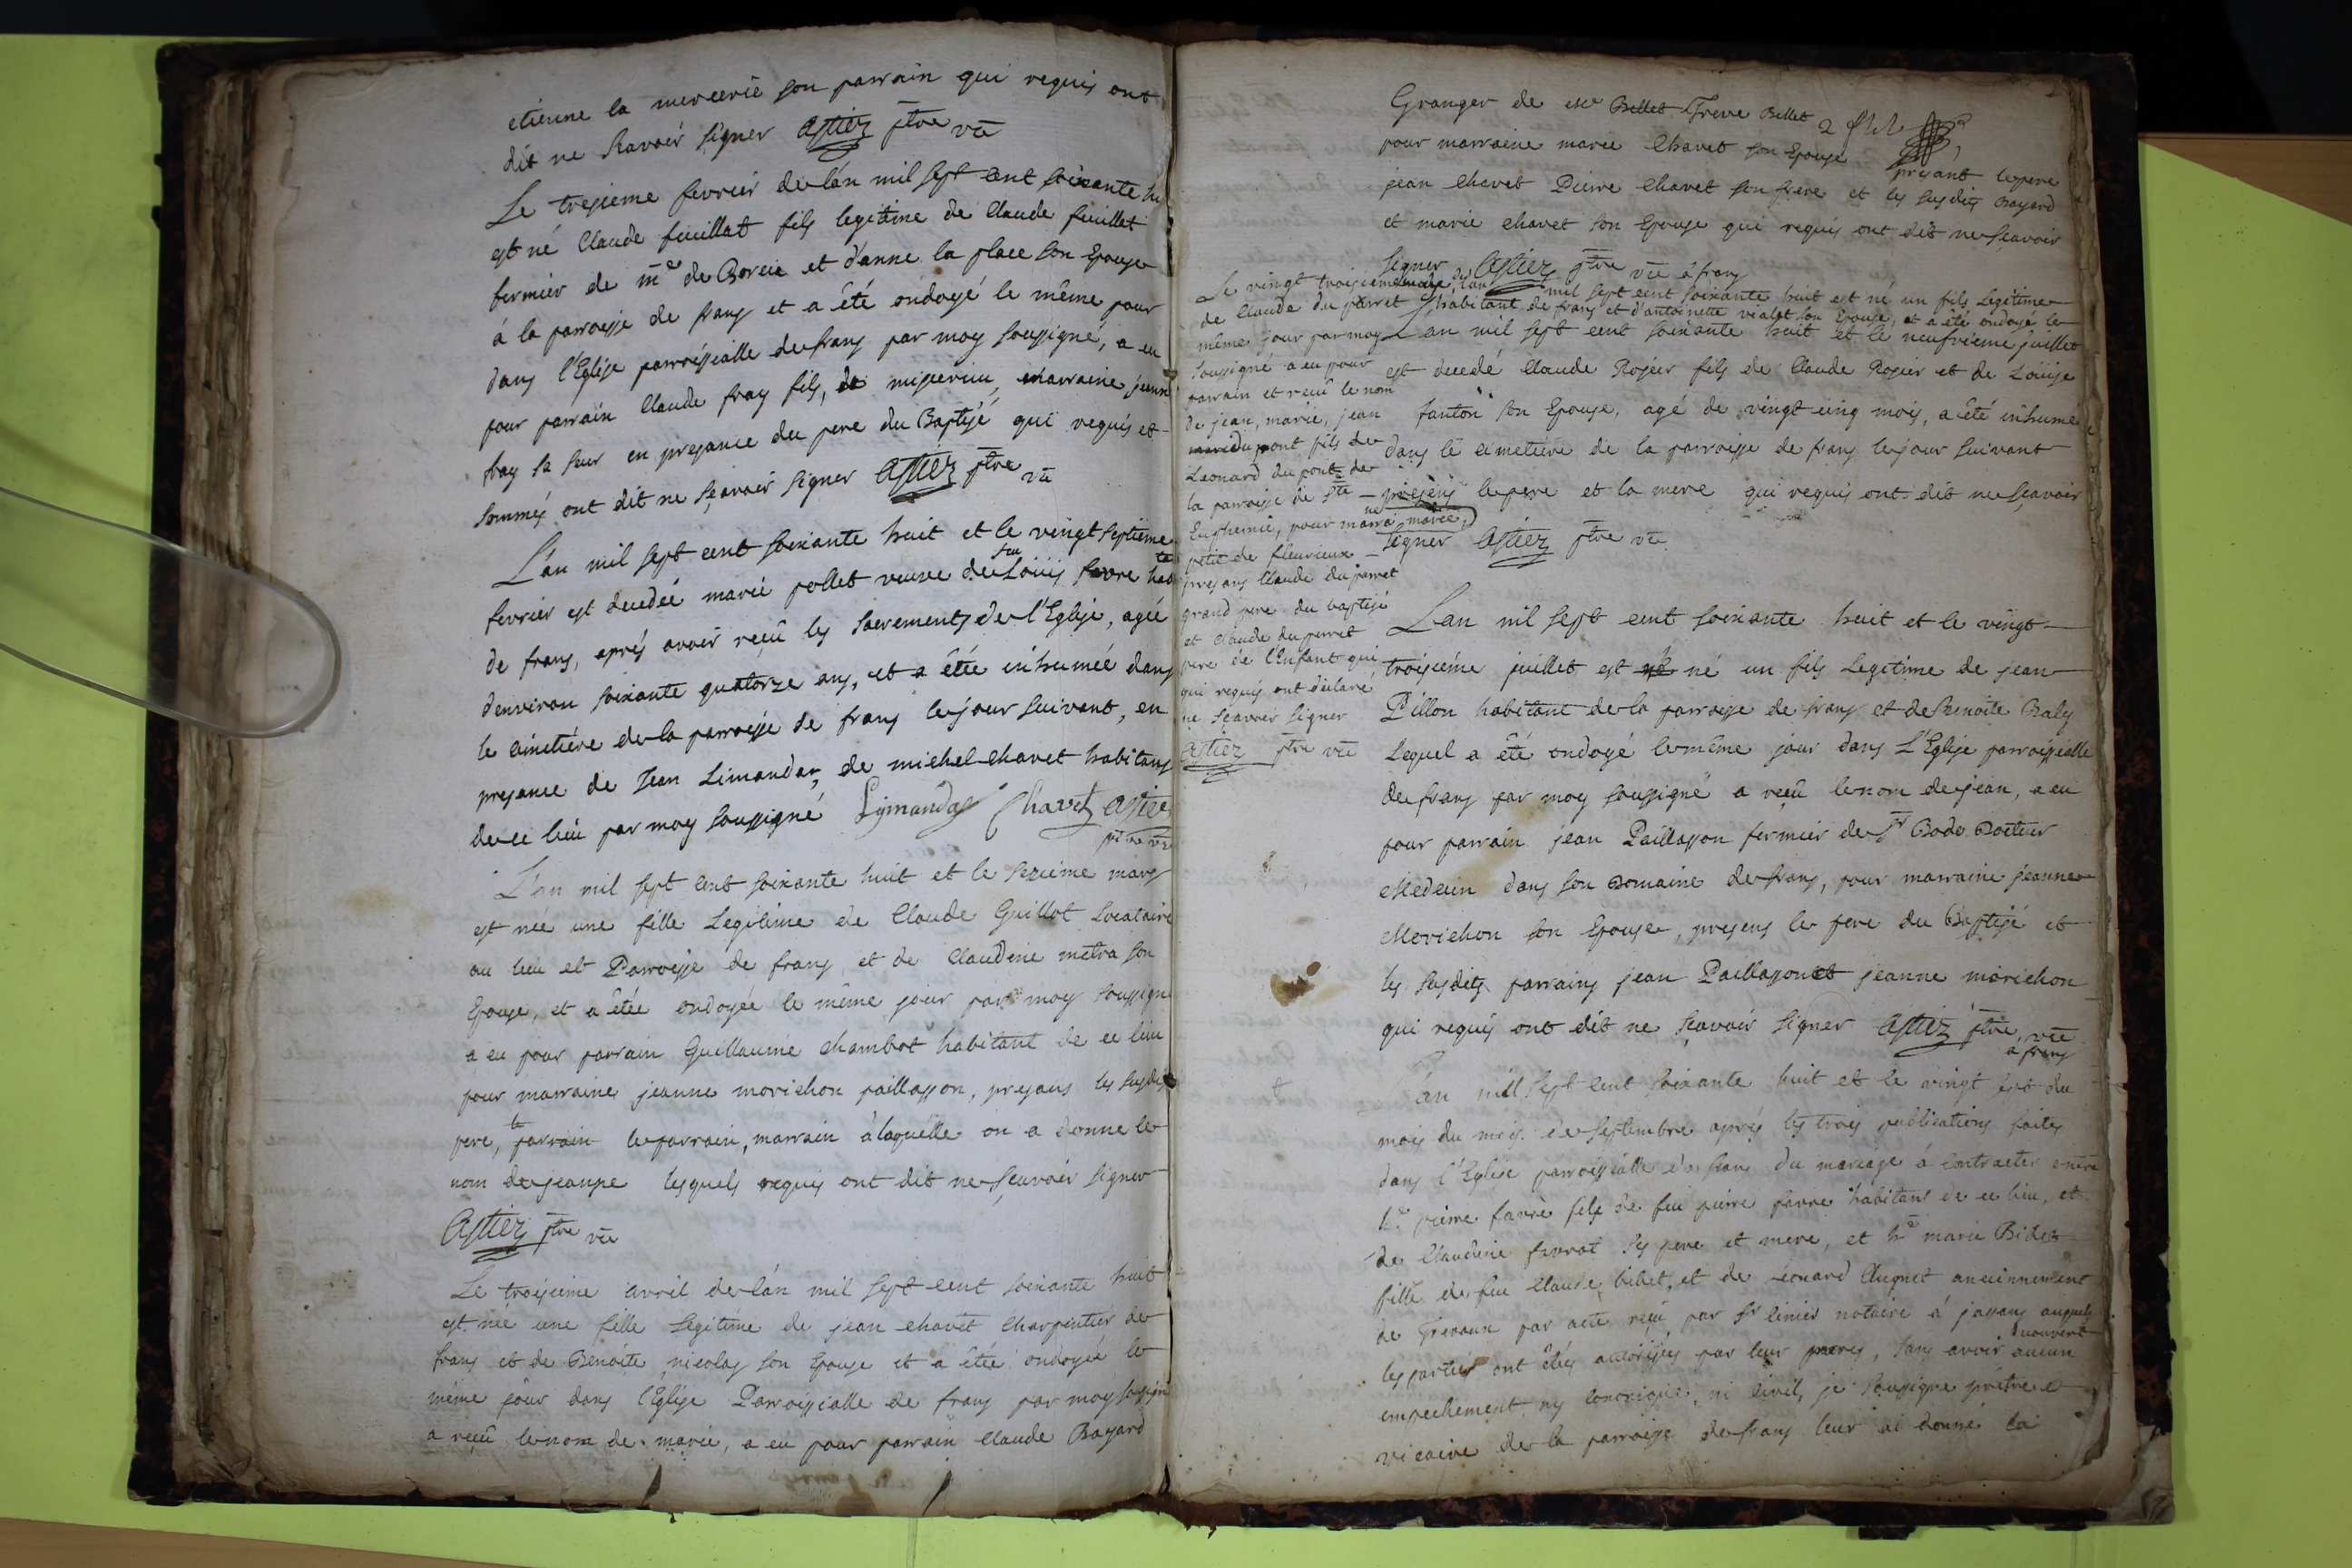 etienne la mercerie son parrain qui requis ont
dit ne scavoir signer astier ptre vic
Le tresieme fevrier de l'an mil sept cent soixante hu
est né Claude feuillat fils legitime de Claude feuillat
fermier de me de Boreie et d'anne la place son Epouse
à la parroisse de frans et a êté ondoyé le même jour
dans l'Eglise parroissialle de frans par moy soussigné, a eu
pour parrain Claude fray fils, de miserieu, marraine jeanne
fray sa seur en presance du pere du Baptisé qui requis et
sommés ont dit ne sçavoir signer astier ptre vic
L'an mil sept cent soixante huit et le vingt septieme
fevrier est decedéé marie pollet veuve de feu Louis favre habte
de frans, aprés avoir reçu les sacrements de l'Eglise, agéé
denviron soixante quatorze ans, et a êtée inhuméé dans
le cimetiére de la parroisse de frans le jour suivant, en
presance de Jean Limandas, de michel chavet habitans
de ce lieu par moy soussigné Lymandas Chavet astier
ptre vic
L'an mil sept cent soixante huit et le sezieme mars
est néé une fille Legitime de Claude Guillot Locataire
au lieu et Parroisse de frans et de Claudine metra son
Epouse, et a êtée ondoyée le même jour par moy soussigné
a eu pour parrain Guillaume chambot habitant de ce lieu
pour marraine jeanne morichon paillasson, presans les susdits
pere, le parrain le parrain, marrain à laquelle on a donne le
nom de jeanne lesquels requis ont dit ne sçavoir signer
astier ptre vic
Le troisieme avril de l'an mil sept cent soixante huit
est néé une fille legitime de jean chavet charpentier de
frans et de Benoite nicolas son Epouse et a êtée ondoyée le
même jour dans l'Eglise Parroissialle de frans par moy soussigné
a reçu le nom de marie, a eu pour parrain Claude Bayard
Granger de Billet Treve Billet
pour marraine marie Chavet son Epouse presant le pere
jean Chavet Pierre Chavet son frere et les susdits Bayard
et marie chavet son Epouse qui requis ont dit ne sçavoir
signer astier ptre vic à frans
Le vingt troisieme de l'an mil sept cent soixante huit est né un fils Legitime
de Claude du perret habitant de frans et d'antoinette vialet son Epouse, et a été ondoyé le
même jour par moy
soussigné a eu pour
parrain et reçu le nom
de jean, marie, jean
marie dupont fils de
Leonard du pont de
la parroisse de Ste
Euphemie, pour marraine marie
petit de fleurieux
presans Claude du perret
grand pere du baptisé
et Claude du perret
pere de l'Enfant qui
qui requis ont declaré
ne sçavoir signer
astier ptre vic
L'an mil sept cent soixante huit et le neufvieme juillet
est decedé Claude Rosier fils de Claude Rosier et de Louise
fanton son Epouse, agé de vingt cinq mois, a été inhumé
dans le cimetiere de la parroisse de frans le jour suivant
presens le pere et la mere qui requis ont dit ne sçavoir
signer astier ptre vic
L'an mil sept cent soixante huit et le vingt
troisieme juillet est né né un fils Legitime de jean
Pillon habitant de la parroisse de frans et de Benoite Baly
Lequel a êté ondoyé le même jour dans L'Eglise parroissialle
de frans par moy soussigné a reçu le nom de jean, a eu
pour parrain jean Paillasson fermier de Sr Bodo Docteur
Medecin dans son Domaine de frans, pour marraine jeanne
Morichon son Epouse, presens le pere du Baptisé et
les susdits parrains jean Paillason et jeanne morichon
qui requis ont dit ne sçavoir signer astier ptre vic
a frans
L'an mil sept cent soixante huit et le vingt sept du
mois du mois de septembre aprés les trois publications faites
dans l'Eglise parroissialle de frans du mariage à contracter entre
he pierre favre fils de feu pierre favre habitant de ce lieu, et
de Claudine favrot ses pere et mere, et he marie Bidet
fille de feu Claude bidet, et de Leonard Chugnet anciennement
de Trevoux par acte reçu par Sr linier notaire à jassans auquels
les parties ont êtés autorisés par leur meres, sans avoir decouvert aucun
empechement ny canonique, ni civil, je soussigne prêtre
vicaire de la parroisse de frans leur ai donné la